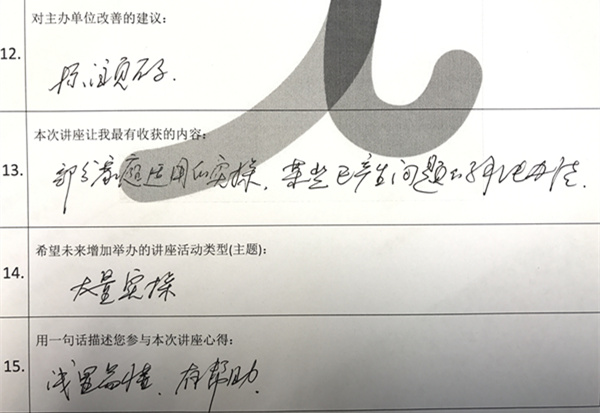 对主办单位改善的建议:
12.
标注页码.
本次讲座让我最有收获的内容:
13. 部分家庭运用的实操, 某些已产生问题的解决办法.
希望未来增加举办的讲座活动类型(主题):
14.
大量实操
用一句话描述您参与本次讲座心得:
15.
有帮助.